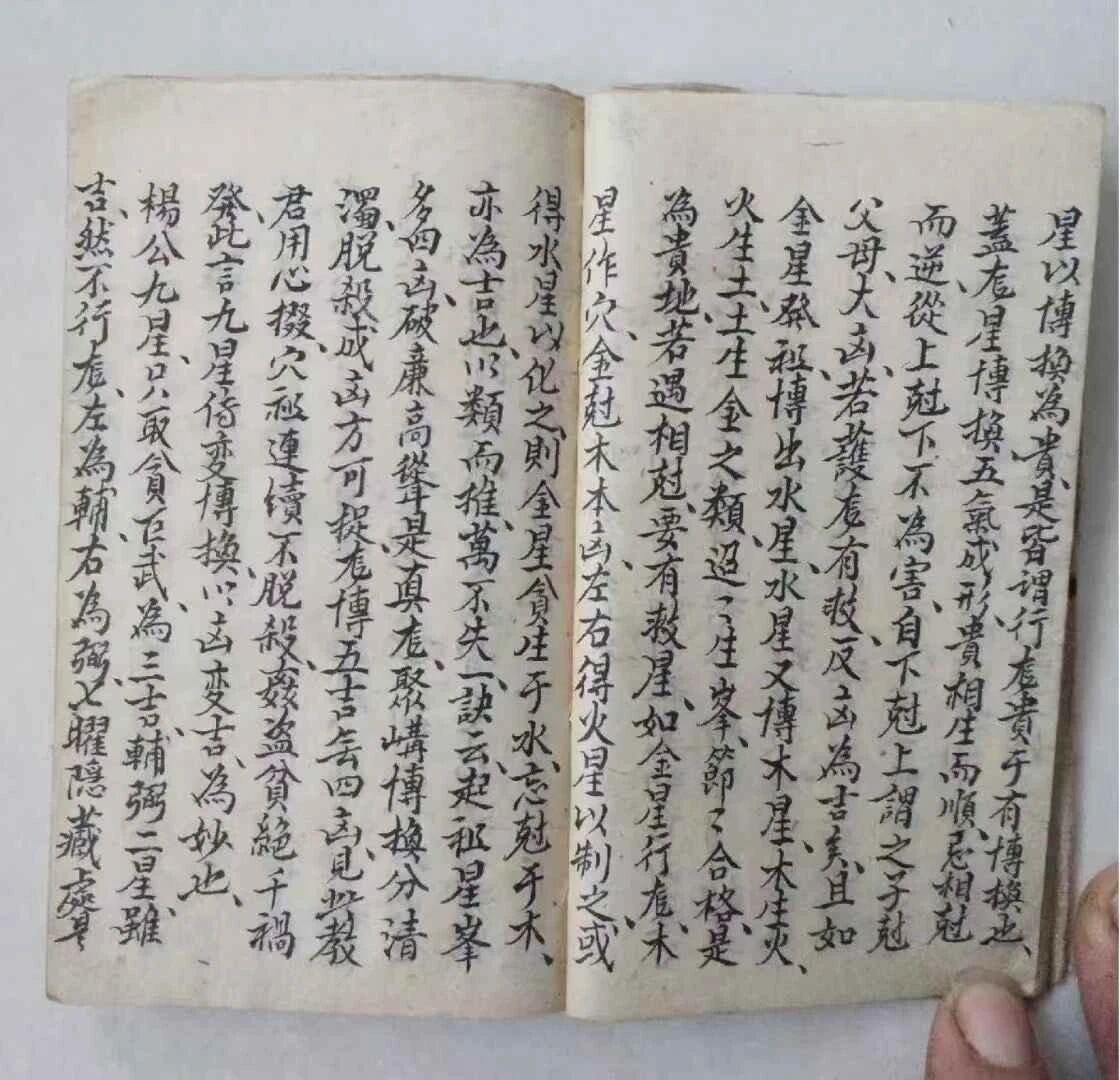 星以博換為貴、是皆謂行龙貴于有博換也、
蓋龙星博換、五氣成形、貴相生而順、忌相尅
而逆、從上尅下不為害、自下尅上謂之子尅
父母、大凶、若護龙有救、反凶為吉矣、且如
金星發祖、博出水星、水星又博木星、木生火、
火生土、土生金之類、迢々生峯、節々合格、是
為貴地、若遇相尅、要有救星、如金星行龙、木
星作穴、金尅木本凶、左右得火星以制之、或
得水星以化之、則金星貪生于水、忘尅于木、
亦為吉也、以類而推、萬不失一、訣云、起祖星峯
多四凶、破廉高聳是真龙、聚嶹博換分清
濁、脱殺成凶方可捉、龙博五吉無四凶、見此教
君用心掇、穴祖連續不脱殺、姦盗貧絶千禍
發、此言九星待变博換、以凶变吉、為妙也、
楊公九星、只取貪巨武、為三吉、輔弼二星、雖
吉、然不行龙、左為輔、右為弼、七曜隐藏處是